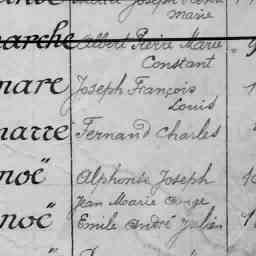 Joseph
Marie
marche Albert Pierre Marie
Constant
mare Joseph François
Louis
marre Fernand Charles
noë Alphonse Joseph
Jean Marie Ange
noë Emile André Julien